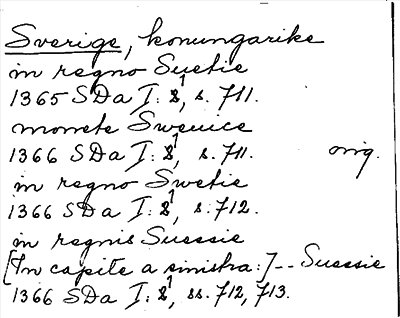 Sverige, konungarike
in regno Suetie
1365 SDa I: 1, s. 711.
monete Sweuice
1366 SDa I: 1, s. 711. orig.
in regno Swetie
1366 SDa I: 1, s. 712.
in regnis Suessie
[In capite a sinistra:] -- Suessie
1366 SDa I: 1, ss. 712, 713.